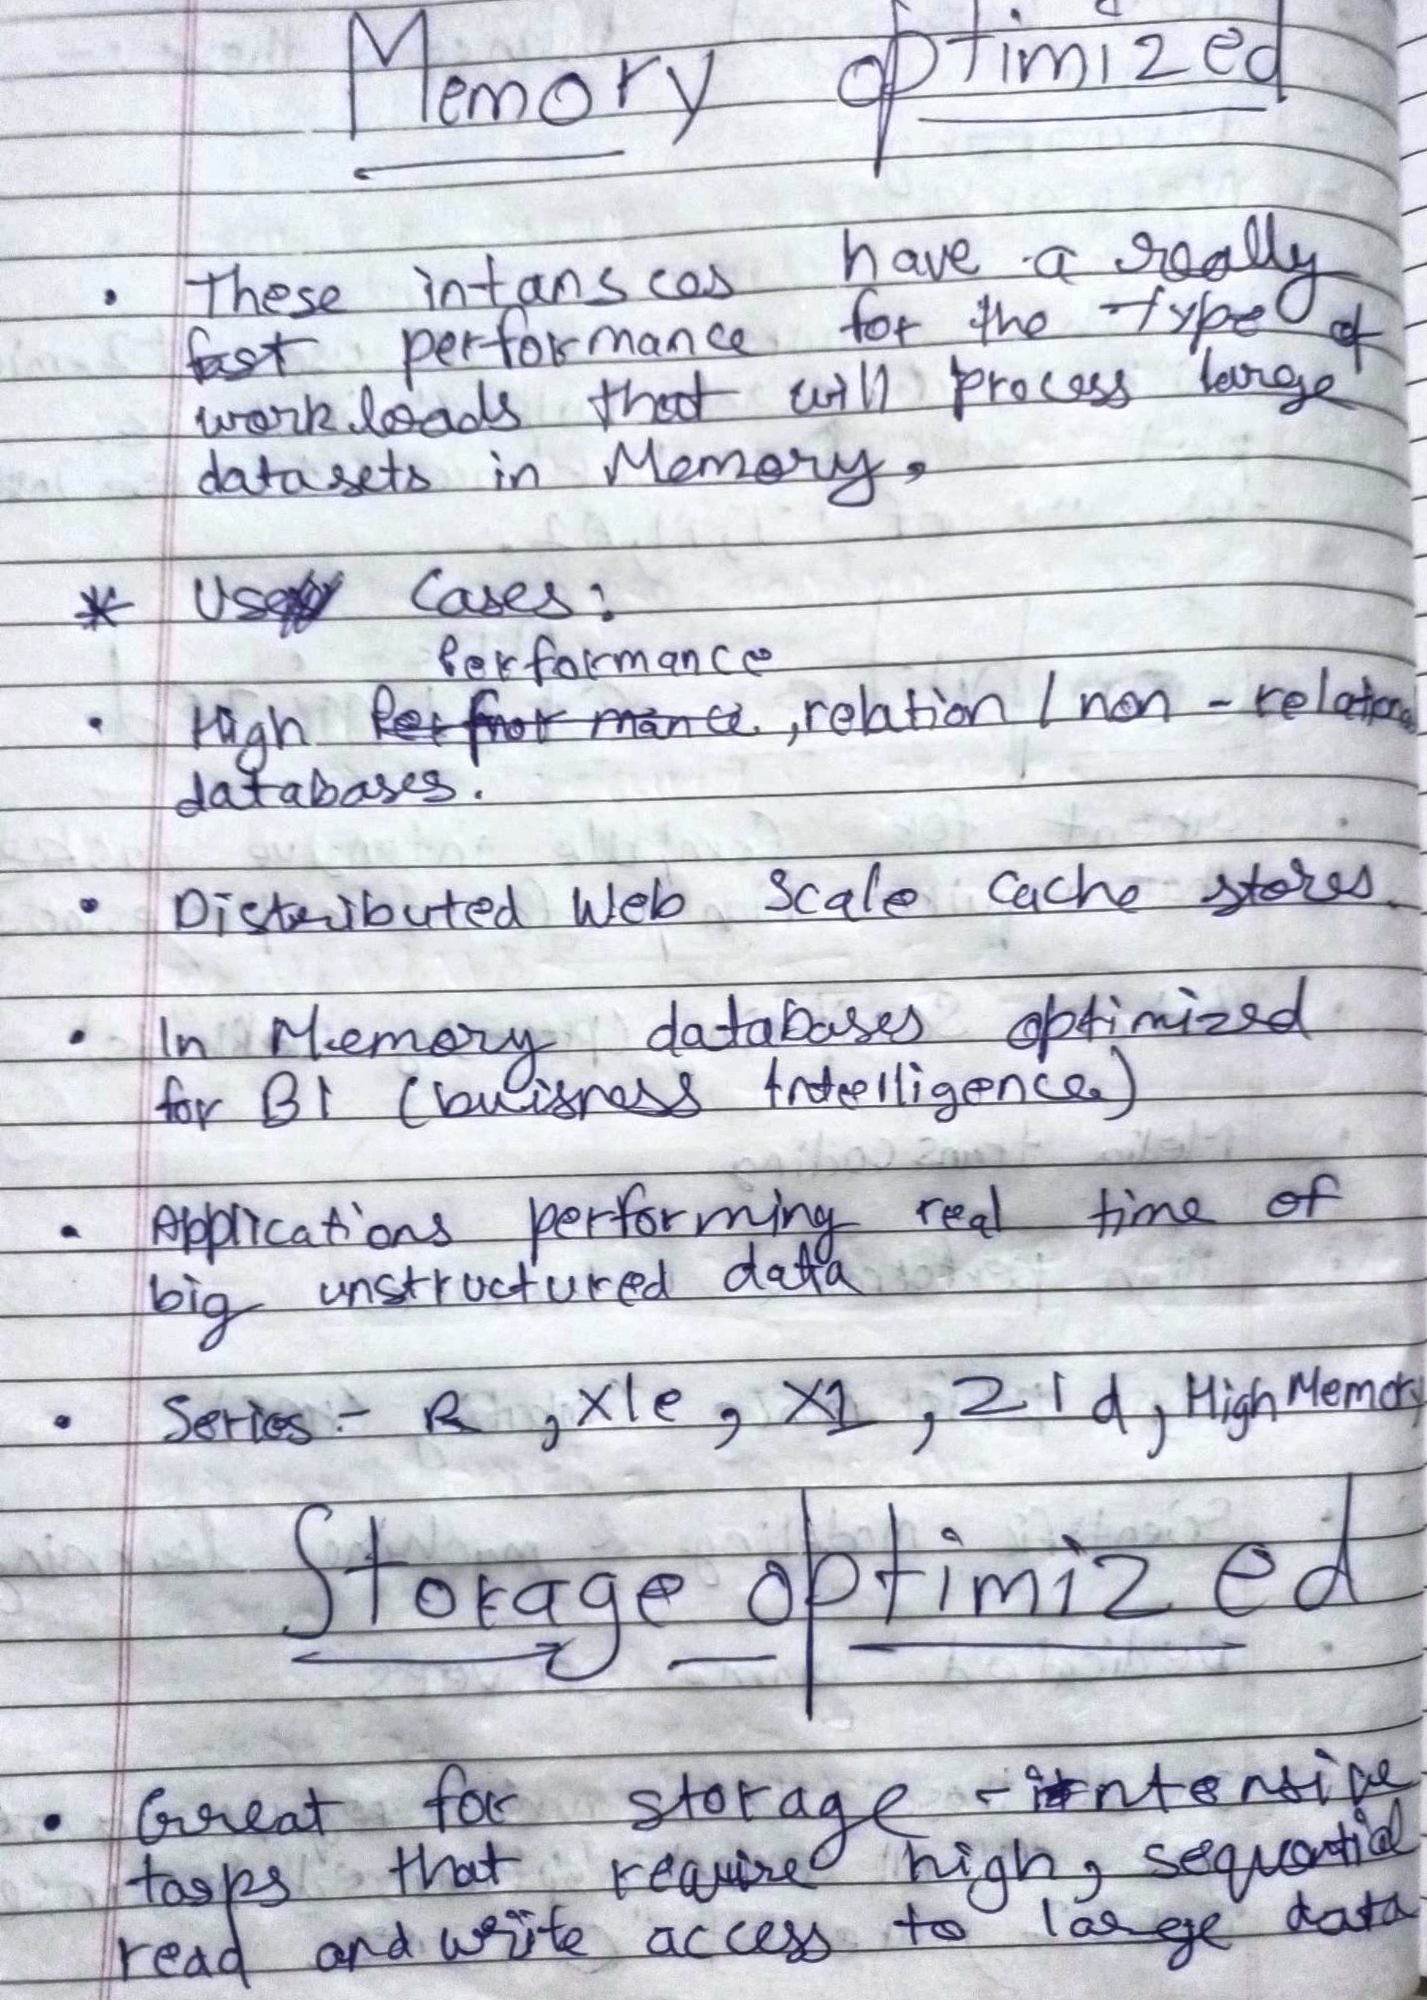 Memory optimized
• These intansces have a really
fast performance for the type of
workloads that will process large
datasets in Memory.
* Use Cases:
Performance
• High Perfnormance, relation / non - relational
databases.
• Distributed Web Scale Cache stores.
• In Memory databases optimized
for BI (buisness Intelligence)
• Applications performing real time of
big unstructured data
• Series :- R , X1e , X1 , Z1d, High Memory
Storage optimized
• Great for storage - intensive
tasps that require high, sequential
read and write access to large data